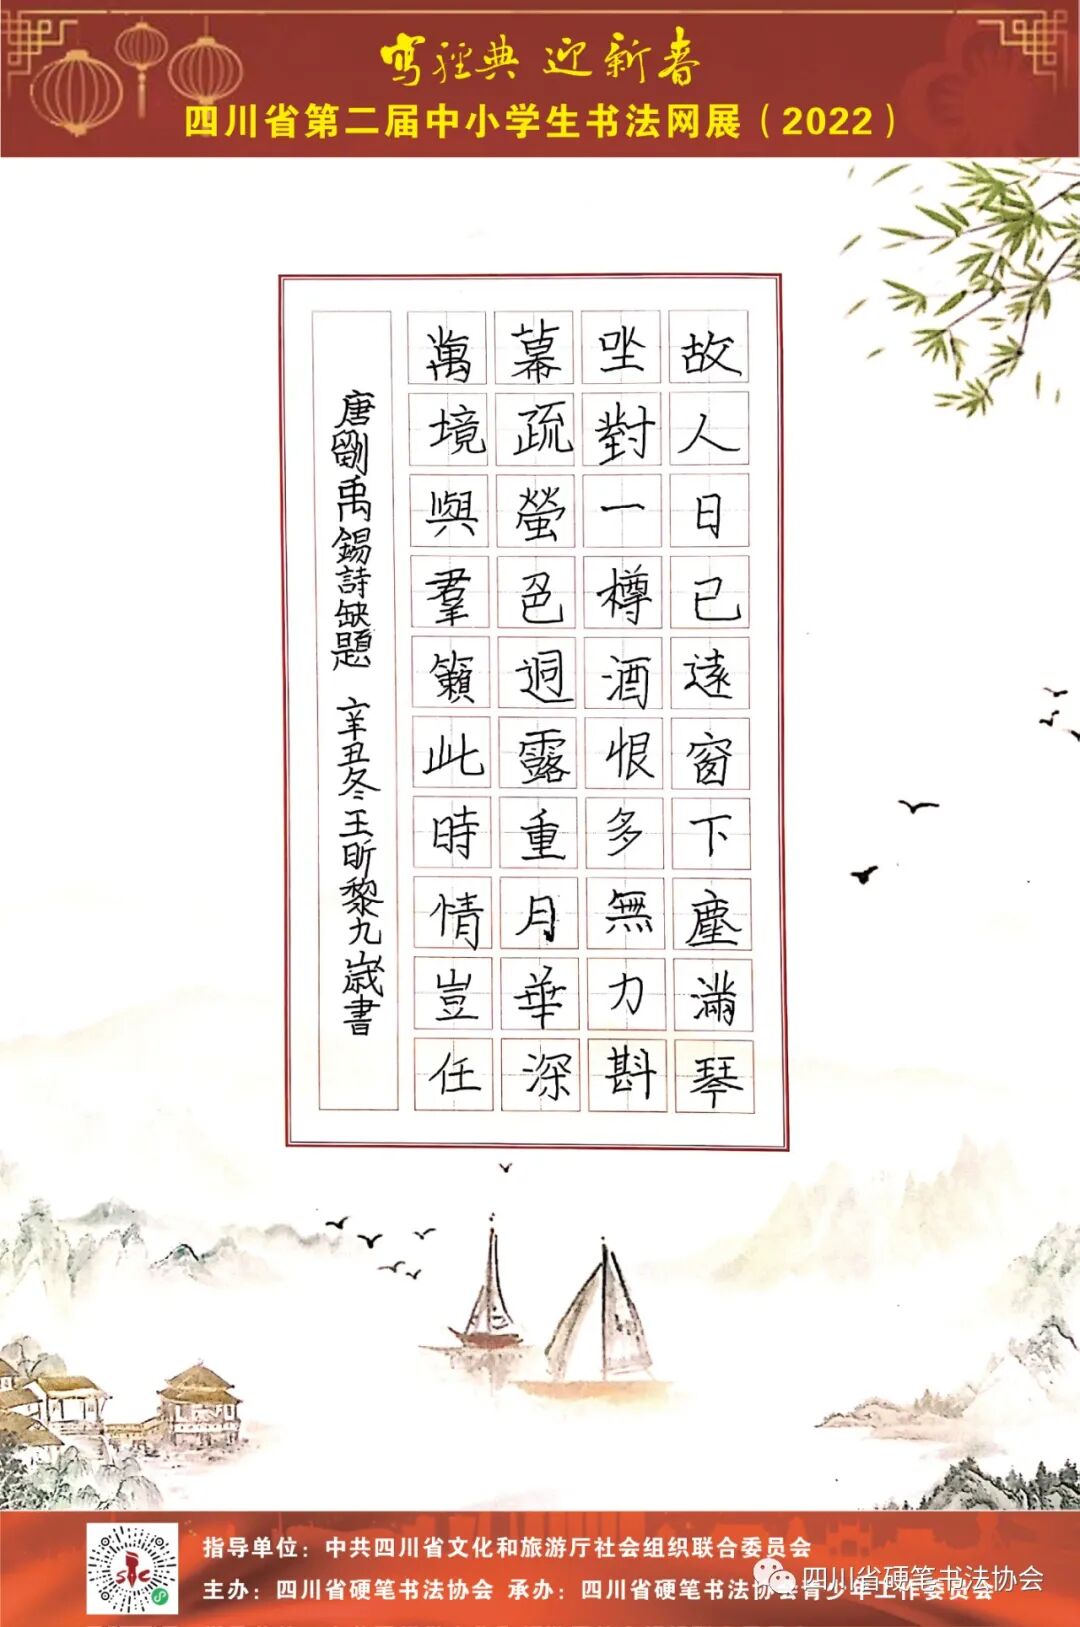 写经典 迎新春
四川省第二届中小学生书法网展（2022）
故人日已遠窗下塵滿琴
坐對一樽酒恨多無力斟
幕疏螢色迥露重月華深
萬境與羣籟此時情豈任
唐劉禹錫詩缺題 辛丑冬王昕黎九歲書
指导单位：中共四川省文化和旅游厅社会组织联合委员会
主办：四川省硬笔书法协会 承办：四川省硬笔书法协会青少年工作委员会
四川省硬笔书法协会